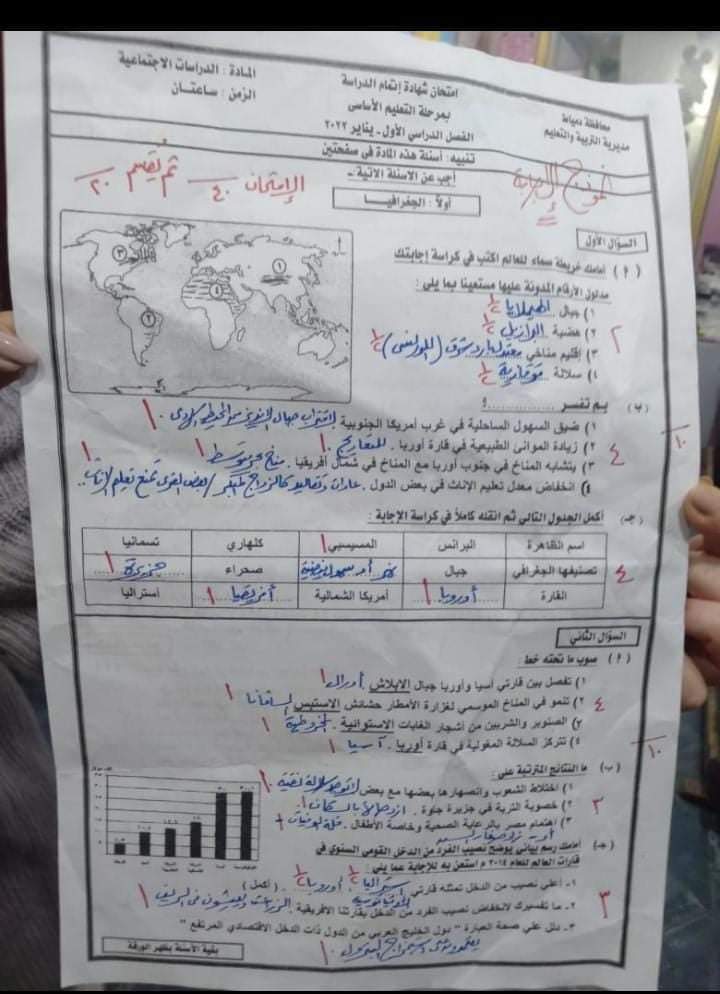 محافظة دمياط
مديرية التربية والتعليم
امتحان شهادة إتمام الدراسة
بمرحلة التعليم الأساسى
الفصل الدراسي الأول - يناير ٢٠٢٢
المادة : الدراسات الاجتماعية
الزمن : ساعتان
تنبيه : أسئلة هذه المادة فى صفحتين
أجب عن الاسئلة الاتية :-
نموذج إجابة
الإمتحان ٤٠ ثم يقسم ٢٠
أولاً : الجغرافيا
السؤال الأول
( أ ) أمامك خريطة صماء للعالم اكتب في كراسة إجابتك
مدلول الأرقام المدونة عليها مستعينا بما يلى :
١) جبال الهيملايا ½
٢) هضبة البرازيل ½
٣) إقليم مناخي معتدل بارد شرق (اللورنسى) ½
٤) سلالة قوقازية ½
٢
(ب) بم تفسر ............ ؟
١) ضيق السهول الساحلية في غرب أمريكا الجنوبية لاقتراب جبال الإنديز من المحيط الهادى ١
٢) زيادة الموانئ الطبيعية في قارة أوربا . للتعاريج ١
٣) يتشابه المناخ في جنوب أوربا مع المناخ في شمال أفريقيا . مناخ بحر متوسط ١
٤) انخفاض معدل تعليم الإناث في بعض الدول . عادات وتقاليد كالزواج المبكر / بعض القرى تمنع تعليم الإناث ١
٤
١٠
(جـ) أكمل الجدول التالي ثم انقله كاملاً في كراسة الإجابة :
اسم الظاهرة البرانس المسيسبي كلهاري تسمانيا
تصنيفها الجغرافي جبال نهر أو سهول فيضية صحراء جزيرة ١
القارة أوروبا ١ أمريكا الشمالية أفريقيا ١ استراليا
٤
السؤال الثاني
( أ ) صوب ما تحته خط :
١) تفصل بين قارتي أسيا وأوربا جبال الابلاش أورال ١
٢) تنمو في المناخ الموسمي لغزارة الأمطار حشائش الاستبس السافانا ١
٣) الصنوبر والشربين من أشجار الغابات الاستوائية . المخروطية ١
٤) تتركز السلالة المغولية في قارة أوربا . آسيا ١
٤
١٠
(ب) ما النتائج المترتبة على :
١) اختلاط الشعوب وانصهارها بعضها مع بعض لا توجد سلالة نقية ١
٢) خصوبة التربة في جزيرة جاوة . ازدحامها بالسكان ١
٣) اهتمام مصر بالرعاية الصحية وخاصة الأطفال . قلة الوفيات ١
٣
(جـ) أمامك رسم بيانى يوضح نصيب الفرد من الدخل القومي السنوي في
قارات العالم للعام ٢٠١٤ م استعن به للإجابة عما يلي :
١- أعلي نصيب من الدخل تمثله قارتي استراليا ½ ، أوروبا ½ . ( أكمل )
٢- ما تفسيرك لانخفاض نصيب الفرد من الدخل بقارتنا الأفريقية
٣- دلل علي صحة العبارة " دول الخليج العربي من الدول ذات الدخل الاقتصادي المرتفع "
٣
بقية الأسئلة بظهر الورقة